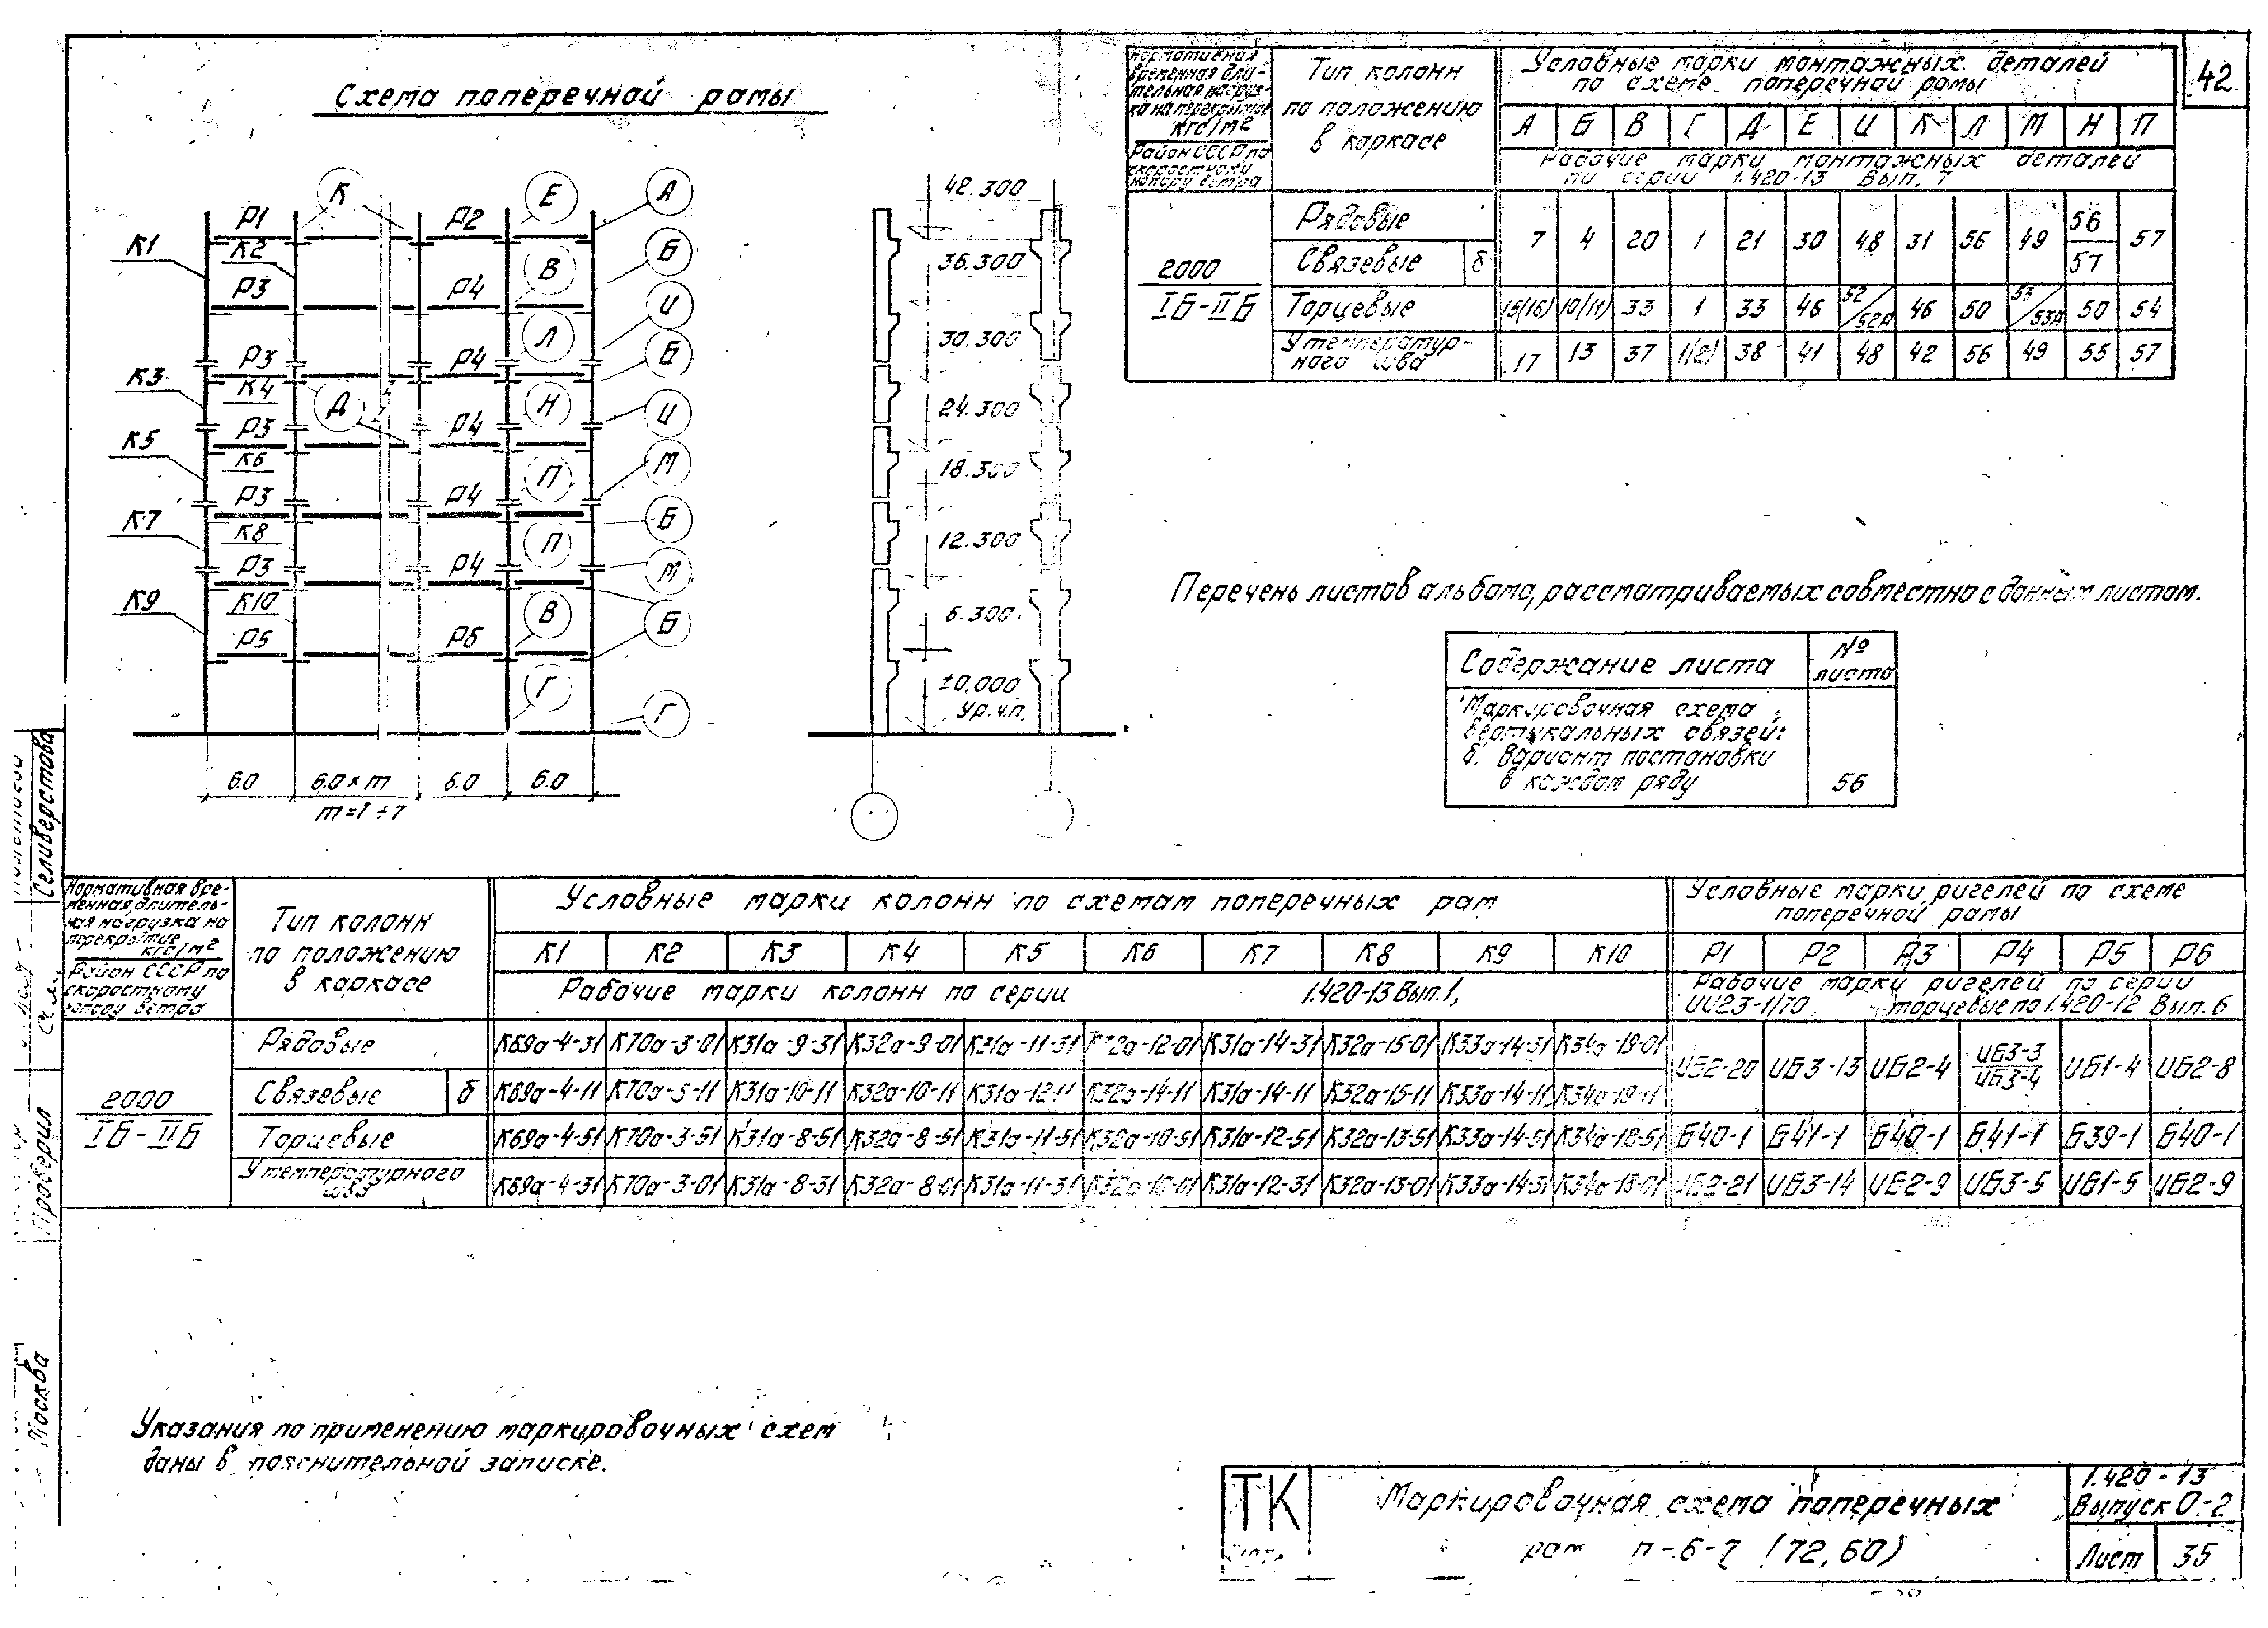 42
Схема поперечной рамы
К Е А
К1 Р1 Р2
К2 Б
Р3 Р4 В
И
Л
К3 Р3 Р4 Б
К4
Д Н И
К5 Р3 Р4
К6 М
Р3 Р4 П
К7 Б
К8 П
Р3 Р4 М
К9 К10 В
Р5 Р6 Б
Г
Г
6.0 6.0×m 6.0 6.0
m=1÷7
42.300
36.300
30.300
24.300
18.300
12.300
6.300
±0,000
Ур.ч.п.
Нормативная временная длительная нагрузка на перекрытие кгс/м2
Район СССР по скоростному напору ветра
Тип колонн по положению в каркасе
Условные марки монтажных деталей по схеме поперечной рамы
А Б В Г Д Е И К Л М Н П
Рабочие марки монтажных деталей по серии 1.420-13 Вып. 7
2000
IБ-IIБ
Рядовые
Связевые б
7 4 20 1 21 30 48 31 56 49 56/57 57
Торцевые 15(16) 10(11) 33 1 33 46 52/52А 46 50 53/53А 50 54
У температурного шва 17 13 37 1(2) 38 41 48 42 56 49 55 57
Перечень листов альбома, рассматриваемых совместно с данным листом.
Содержание листа № листа
Маркировочная схема
вертикальных связей:
б. Вариант постановки
в каждом ряду 56
Нормативная временная длительная нагрузка на перекрытие кгс/м2
Район СССР по скоростному напору ветра
Тип колонн по положению в каркасе
Условные марки колонн по схемам поперечных рам
Условные марки ригелей по схеме поперечной рамы
К1 К2 К3 К4 К5 К6 К7 К8 К9 К10 Р1 Р2 Р3 Р4 Р5 Р6
Рабочие марки колонн по серии 1.420-13 Вып.1,
Рабочие марки ригелей по серии
ИИ23-1/70, торцевые по 1.420-12 Вып. 6
2000
IБ-IIБ
Рядовые К69а-4-31 К70а-3-01 К31а-9-31 К32а-9-01 К31а-11-31 К32а-12-01 К31а-14-31 К32а-15-01 К33а-14-31 К34а-19-01
ИБ2-20 ИБ3-13 ИБ2-4 ИБ3-3/ИБ3-4 ИБ1-4 ИБ2-8
Связевые б К69а-4-11 К70а-5-11 К31а-10-11 К32а-10-11 К31а-12-11 К32а-14-11 К31а-14-11 К32а-15-11 К33а-14-11 К34а-19-11
Торцевые К69а-4-51 К70а-3-51 К31а-8-51 К32а-8-51 К31а-11-51 К32а-10-51 К31а-12-51 К32а-13-51 К33а-14-51 К34а-12-51 Б40-1 Б41-1 Б40-1 Б41-1 Б39-1 Б40-1
У температурного шва К69а-4-31 К70а-3-01 К31а-8-31 К32а-8-01 К31а-11-31 К32а-10-01 К31а-12-31 К32а-13-01 К33а-14-31 К34а-13-01 ИБ2-21 ИБ3-14 ИБ2-9 ИБ3-5 ИБ1-5 ИБ2-9
Селиверстова
Проверил
Москва
Указания по применению маркировочных схем
даны в пояснительной записке.
ТК
Маркировочная схема поперечных
рам п-6-7 (72,60)
1.420-13
Выпуск 0-2
Лист 35